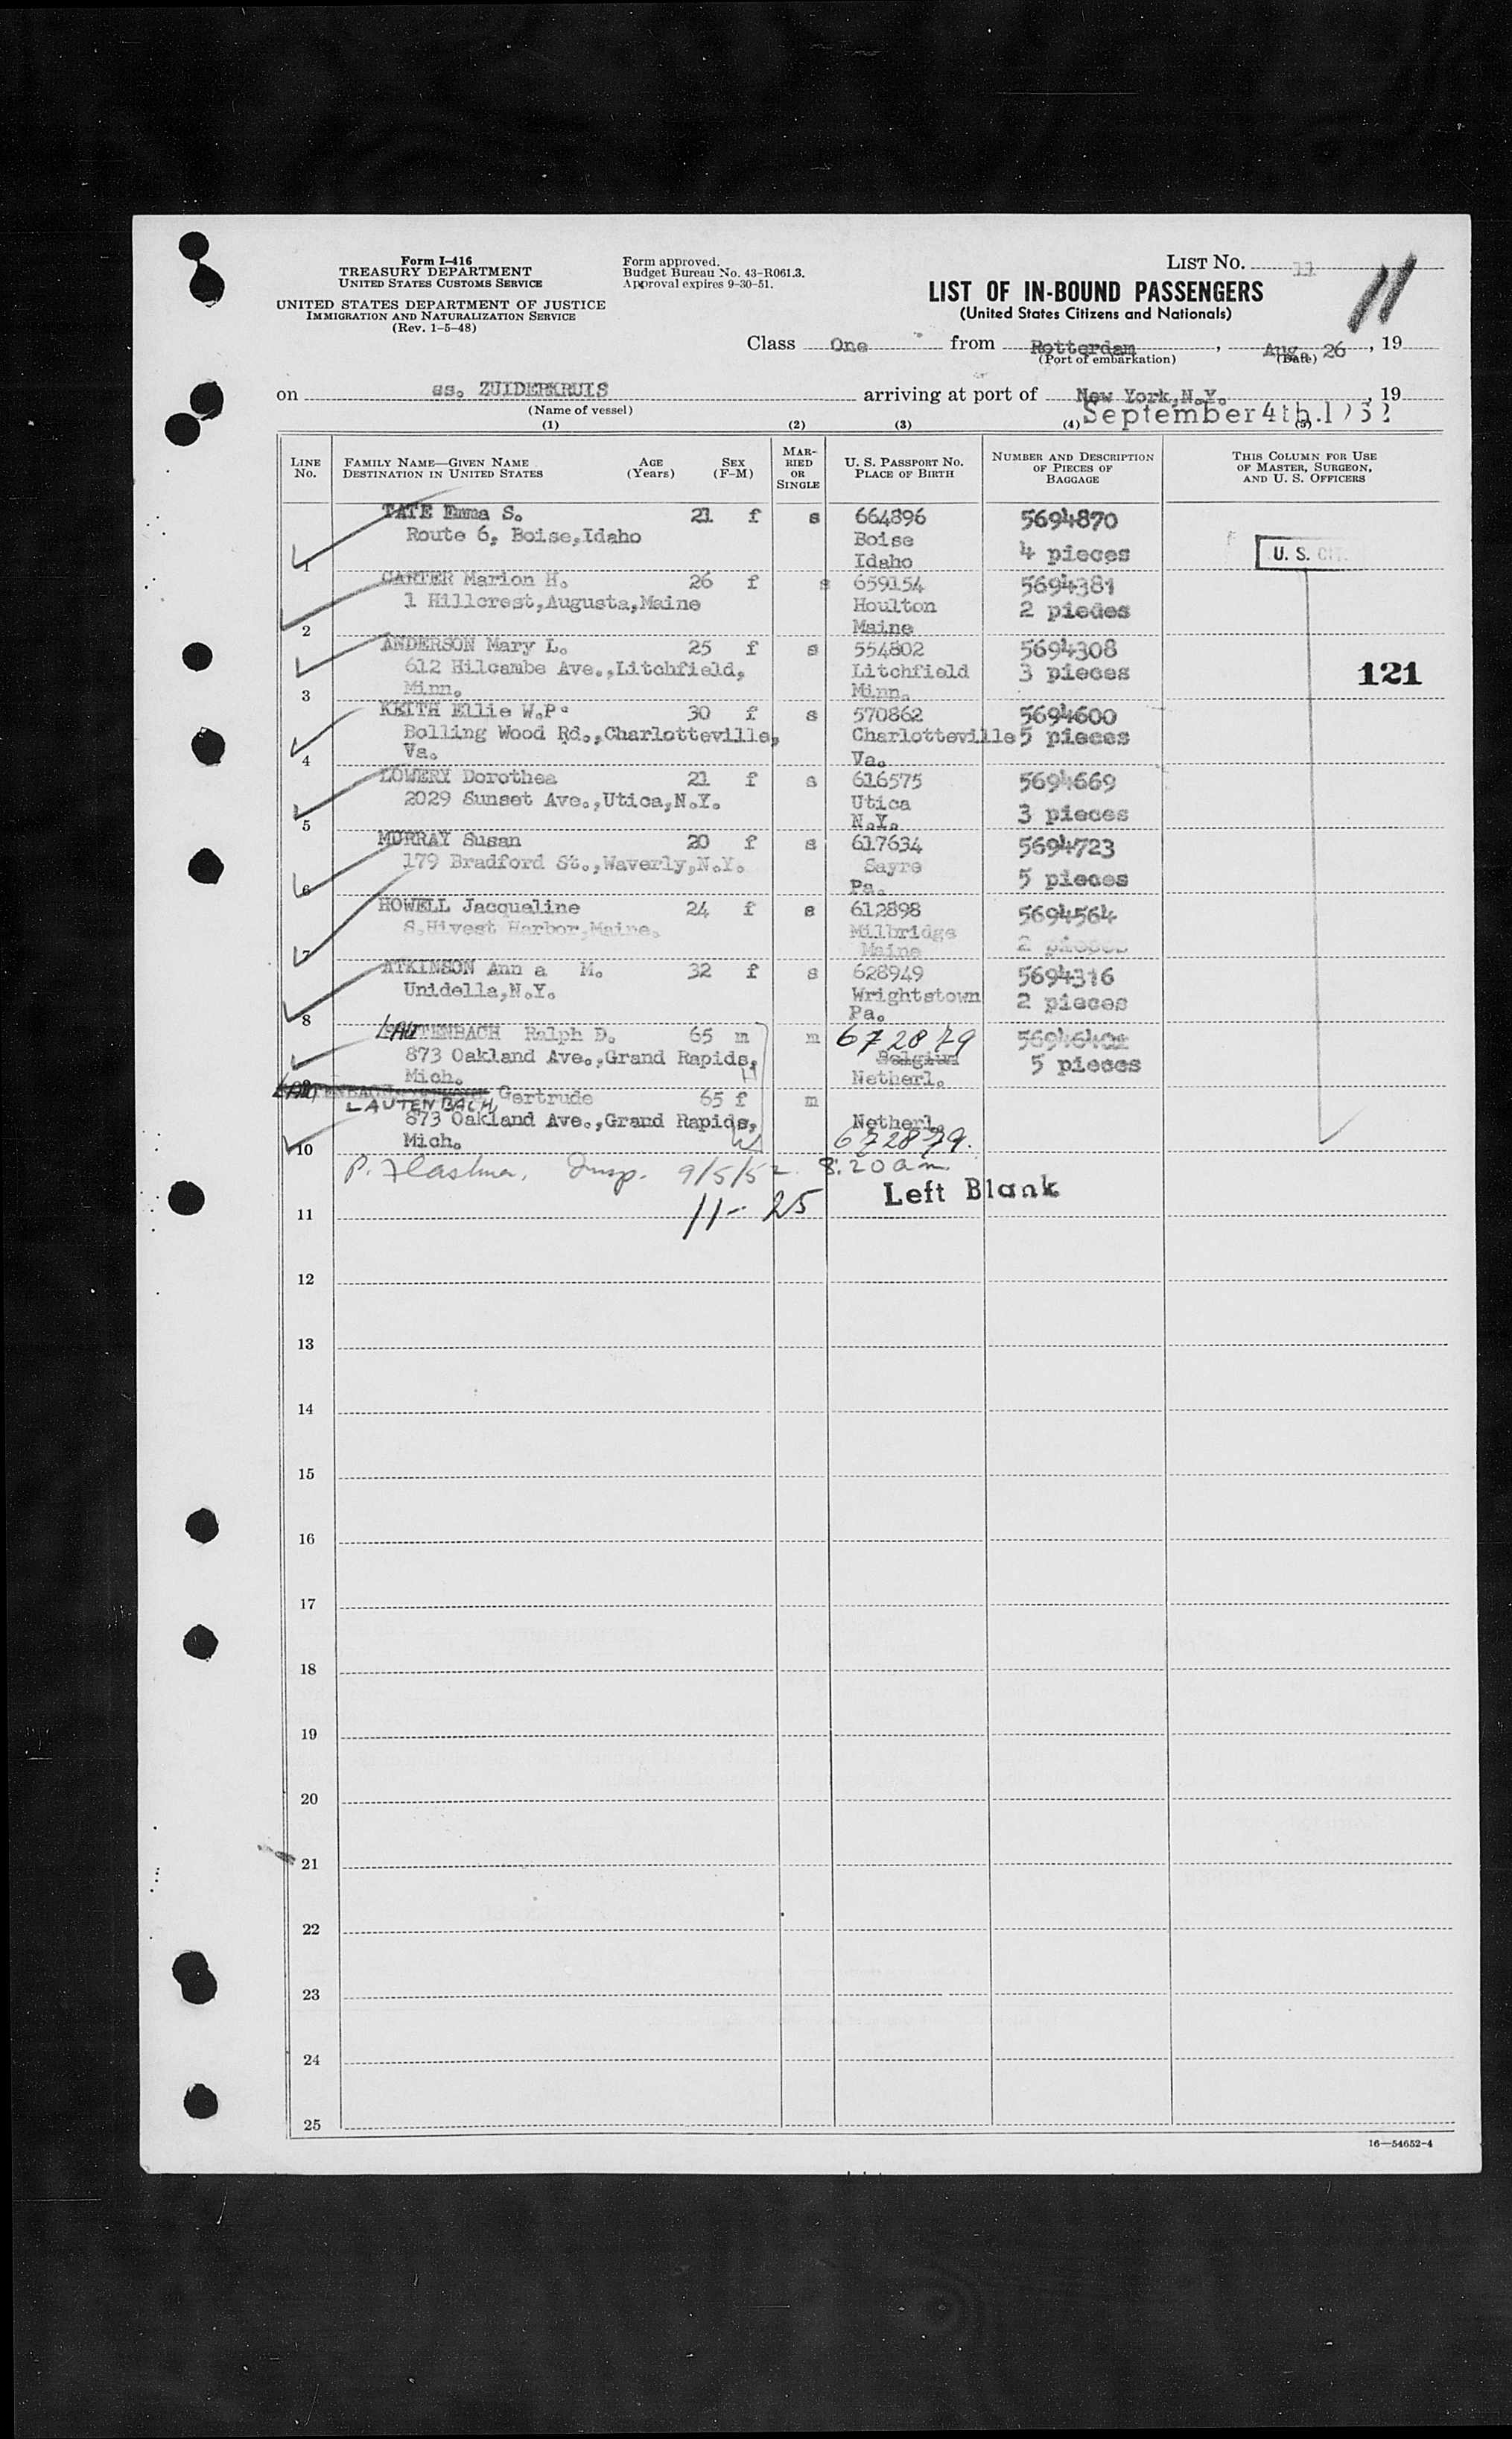 Form I-416
TREASURY DEPARTMENT
UNITED STATES CUSTOMS SERVICE
UNITED STATES DEPARTMENT OF JUSTICE
IMMIGRATION AND NATURALIZATION SERVICE
(Rev. 1-5-48)
Form approved.
Budget Bureau No. 43-R061.3.
Approval expires 9-30-51.
LIST No. 11
11
LIST OF IN-BOUND PASSENGERS
(United States Citizens and Nationals)
Class One from Rotterdam, Aug. 26, 19
(Port of embarkation) (Date)
on ss. ZUIDERKRUIS arriving at port of New York, N.Y., 19
(Name of vessel) September 4th. 1952
(1) (2) (3) (4) (5)
LINE No. FAMILY NAME—GIVEN NAME DESTINATION IN UNITED STATES AGE (Years) SEX (F-M) MARRIED OR SINGLE U. S. PASSPORT NO. PLACE OF BIRTH NUMBER AND DESCRIPTION OF PIECES OF BAGGAGE THIS COLUMN FOR USE OF MASTER, SURGEON, AND U. S. OFFICERS
TATE Emma S. 21 f s 664896 5694870
Route 6, Boise, Idaho Boise 4 pieces U. S. CIT.
1 Idaho
CARTER Marion H. 26 f s 659154 5694381
1 Hillcrest, Augusta, Maine Houlton 2 pieces
2 Maine
ANDERSON Mary L. 25 f s 554802 5694308
612 Hilcambe Ave., Litchfield, Litchfield 3 pieces 121
3 Minn. Minn.
KEITH Ellie W.P. 30 f s 570862 5694600
Bolling Wood Rd., Charlotteville, Charlotteville 5 pieces
4 Va. Va.
LOWERY Dorothea 21 f s 616575 5694669
2029 Sunset Ave., Utica, N.Y. Utica 3 pieces
5 N.Y.
MURRAY Susan 20 f s 617634 5694723
179 Bradford St., Waverly, N.Y. Sayre 5 pieces
6 Pa.
HOWELL Jacqueline 24 f s 612898 5694564
S.Hivest Harbor, Maine. Milbridge 2 pieces
7 Maine
ATKINSON Ann a M. 32 f s 628949 5694316
Unidella, N.Y. Wrightstown 2 pieces
8 Pa.
LAUTENBACH Ralph D. 65 m m 672879
873 Oakland Ave., Grand Rapids, Belgium 5 pieces
9 Mich. Netherl.
LAUTENBACH Gertrude 65 f m
873 Oakland Ave., Grand Rapids, Netherl.
10 Mich. 672879.
Insp. 9/5/52 8.20 am
11-25 Left Blank
11
12
13
14
15
16
17
18
19
20
21
22
23
24
25
16—54652-4